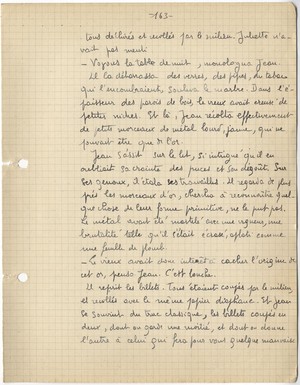 -163-
tous déchirés et recollés par le milieu. Juliette n'a-
vait pas menti.
- Voyons la table de nuit, monologua Jean.
Il la débarrassa des verres, des pipes, du tabac
qui l'encombraient, souleva le marbre. Dans l'é-
paisseur des parois de bois, le vieux avait creusé de
petites niches. Et là, Jean récolta effectivement
de petits morceaux de métal lourd, jaune, qui ne
pouvait être que de l'or.
Jean s'assit sur le lit, si intrigué qu'il en
oubliait sa crainte des puces et son dégoût. Sur
ses genoux, il étala ses trouvailles. Il regarda de plus
près les morceaux d'or, chercha à reconnaître quel-
que chose de leur forme primitive, ne le put pas,
le métal avait été martelé avec une vigueur, une
brutalité telle qu'il s'était écrasé, aplati comme
une feuille de plomb.
- Le vieux avait donc intérêt à cacher l'origine de
cet or, pensa Jean. C'est louche.
Il reprit les billets. Tous étaient coupés par le milieu
et recollés avec le même papier diaphane. Et Jean
se souvint du truc classique, les billets coupés en
deux, dont on garde une moitié, et dont on donne
l'autre à celui qui fera pour vous quelque mauvaise